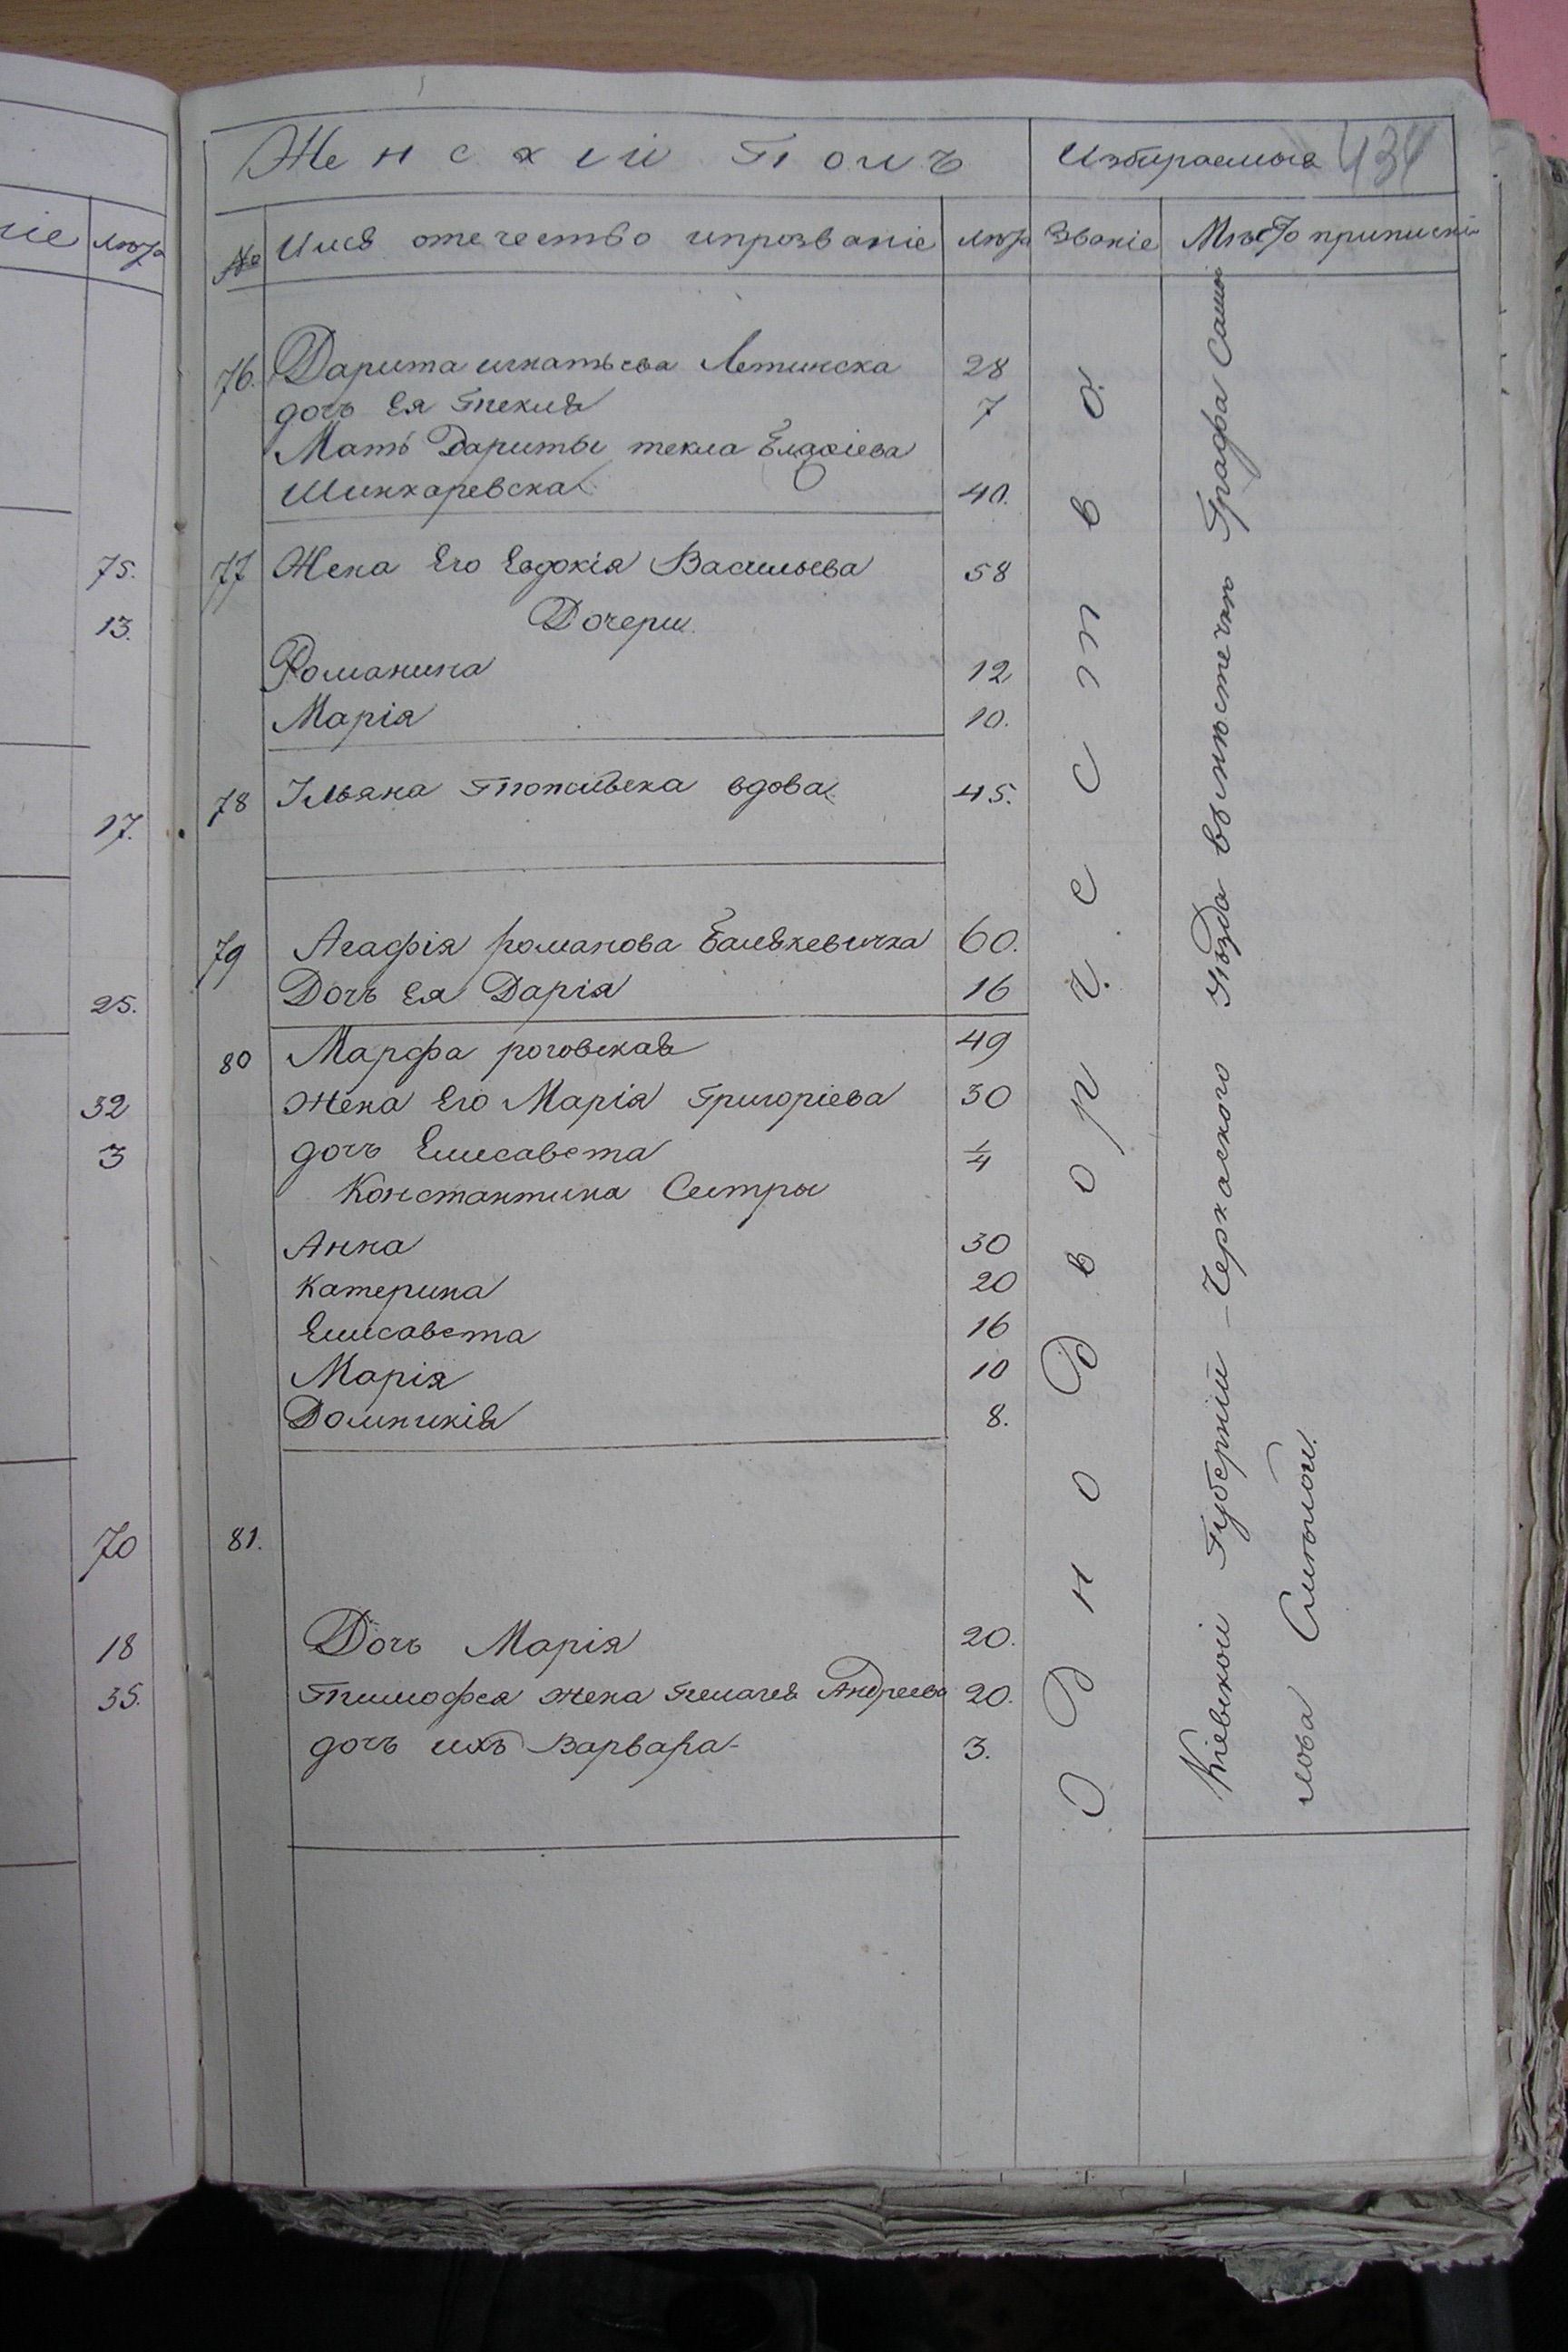 ніе
лѣта
75.
13.
17.
25.
32
3
70
18
35.
Женскій Полъ
Избираемыя 434
№ Имя отечество ипрозваніе лѣта Званіе Мѣсто приписки
76. Дарита игнатьева Летинска 28
дочь Ея Текля 7
Мать Дариты текла
Шинкаревска 40.
77 Жена Его Евдокія Васильева 58
Дочери
Романина 12
Марія 10.
78 Ульяна вдова 45.
79 Агафія романова Балякевичка 60.
Дочь Ея Дарія 16
80 Марфа роговская 49
Жена Его Марія Григоріева 30
дочь Елисавета 1/4
Константина Сестры
Анна 30
Катерина 20
Елисавета 16
Марія 10
Домникія 8.
81.
Дочь Марія 20.
Тимофея жена Андреева 20.
дочь ихъ Варвара 3.
Однодворческтво.
Кіевской Губерніи Черкаского Уѣзда вымѣстечко Графа Самой
лова Смѣлой.